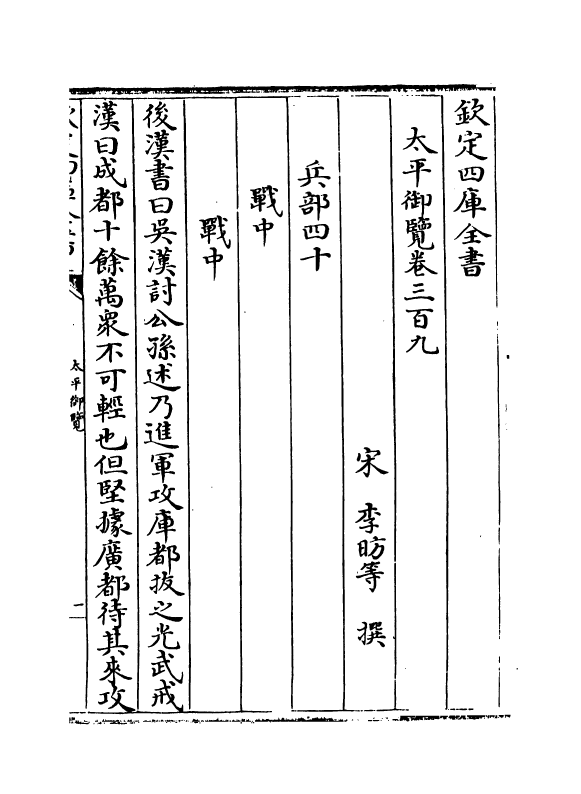 欽定四庫全書
太平御覽卷三百九
宋 李昉等 撰
兵部四十
戰中
戰中
後漢書曰吳漢討公孫述乃進軍攻庫都拔之光武戒
漢曰成都十餘萬衆不可輕也但堅據廣都待其來攻
太平御覽